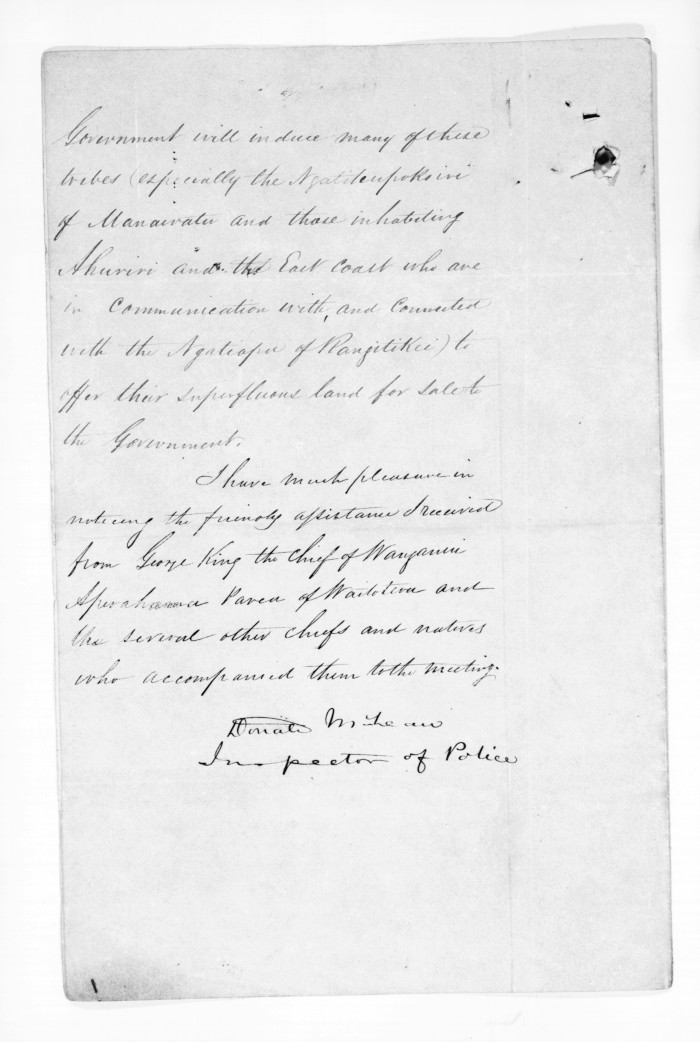 Government will induce many of these
tribes (especially the Ngatiteupokoiri
of Manawatu and those inhabiting
Ahuriri and the East Coast who are
in communication with, and connected
with the Ngatiapa of Rangitikei) to
offer their superfluous land for sale to
the Government.
I have much pleasure in
noticing the friendly assistance I received
from George King the Chief of Wanganui
Aperahama Parea of Waitotera and
the several other chiefs and natives
who accompanied them to the meeting.
Donald McLean
Inspector of Police